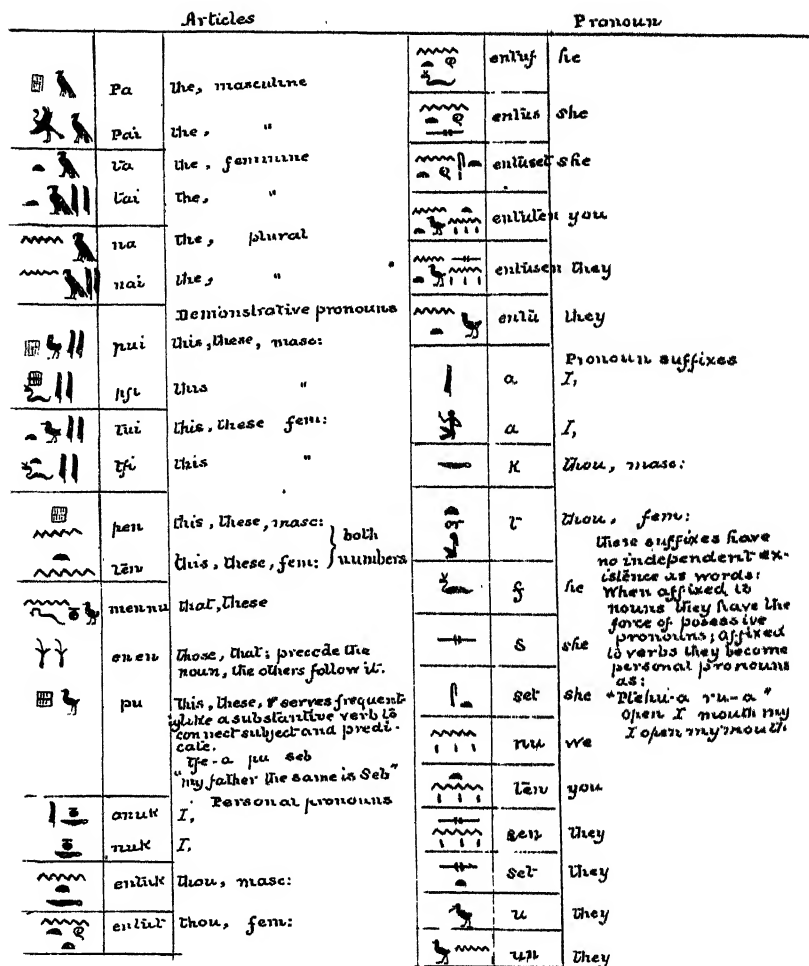 Articles
Pa the, masculine
Pai the, "
ta the, feminine
tai the, "
na the, plural
nai the, "
Demonstrative pronouns
pui this, these, masc:
pfi this "
tui this, these fem:
tfi this "
pen this, these, masc: } both
ten this, these, fem: } numbers
mennu that, these
enen those, that; precede the
noun, the others follow it.
pu this, these, & serves frequent-
ly like a substantive verb to
connect subject and predi-
cate.
tfe-a pu seb
"my father the same is Seb"
Personal pronouns
anuk I,
nuk I,
entuk thou, masc:
entut thou, fem:
Pronoun
entuf he
entus she
entuset she
entuten you
entusen they
entu they
Pronoun suffixes
a I,
a I,
K thou, masc:
t thou, fem:
these suffixes have
no independent ex-
istence as words:
When affixed to
nouns they have the
force of posessive
pronouns; affixed
to verbs they become
personal pronouns
as:
"Ptehu-a ru-a"
open I mouth my
I open my mouth
f he
s she
set she
nu we
ten you
sen they
set they
u they
un they